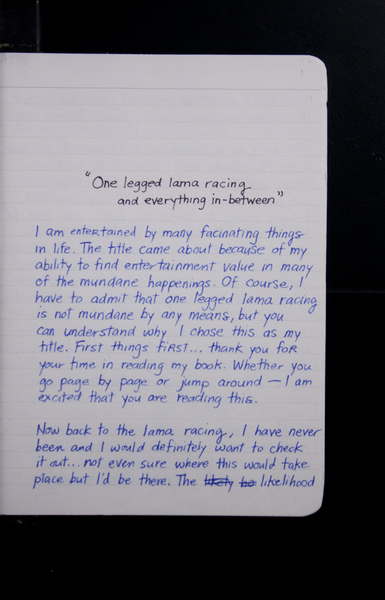 "One legged lama racing
and everything in-between"
I am entertained by many facinating things
in life. The title came about because of my
ability to find entertainment value in many
of the mundane happenings. Of course, I
have to admit that one legged lama racing
is not mundane by any means, but you
can understand why I chose this as my
title. First things first... thank you for
your time in reading my book. Whether you
go page by page or jump around — I am
excited that you are reading this.
Now back to the lama racing, I have never
been and I would definitely want to check
it out... not even sure where this would take
place but I'd be there. The likely be likelihood